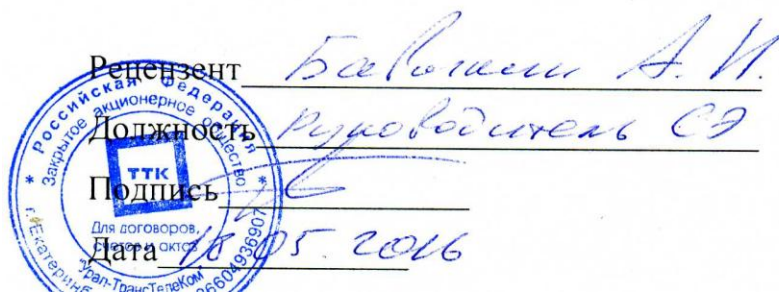 Рецензент А. И.
Должность Руководитель СЭ
Подпись
Дата 18 05. 2016
Российская Федерация
Закрытое акционерное общество
ТТК
Для договоров,
счетов и актов
"Урал-ТрансТелеКом"
г. Екатеринб
6604936907